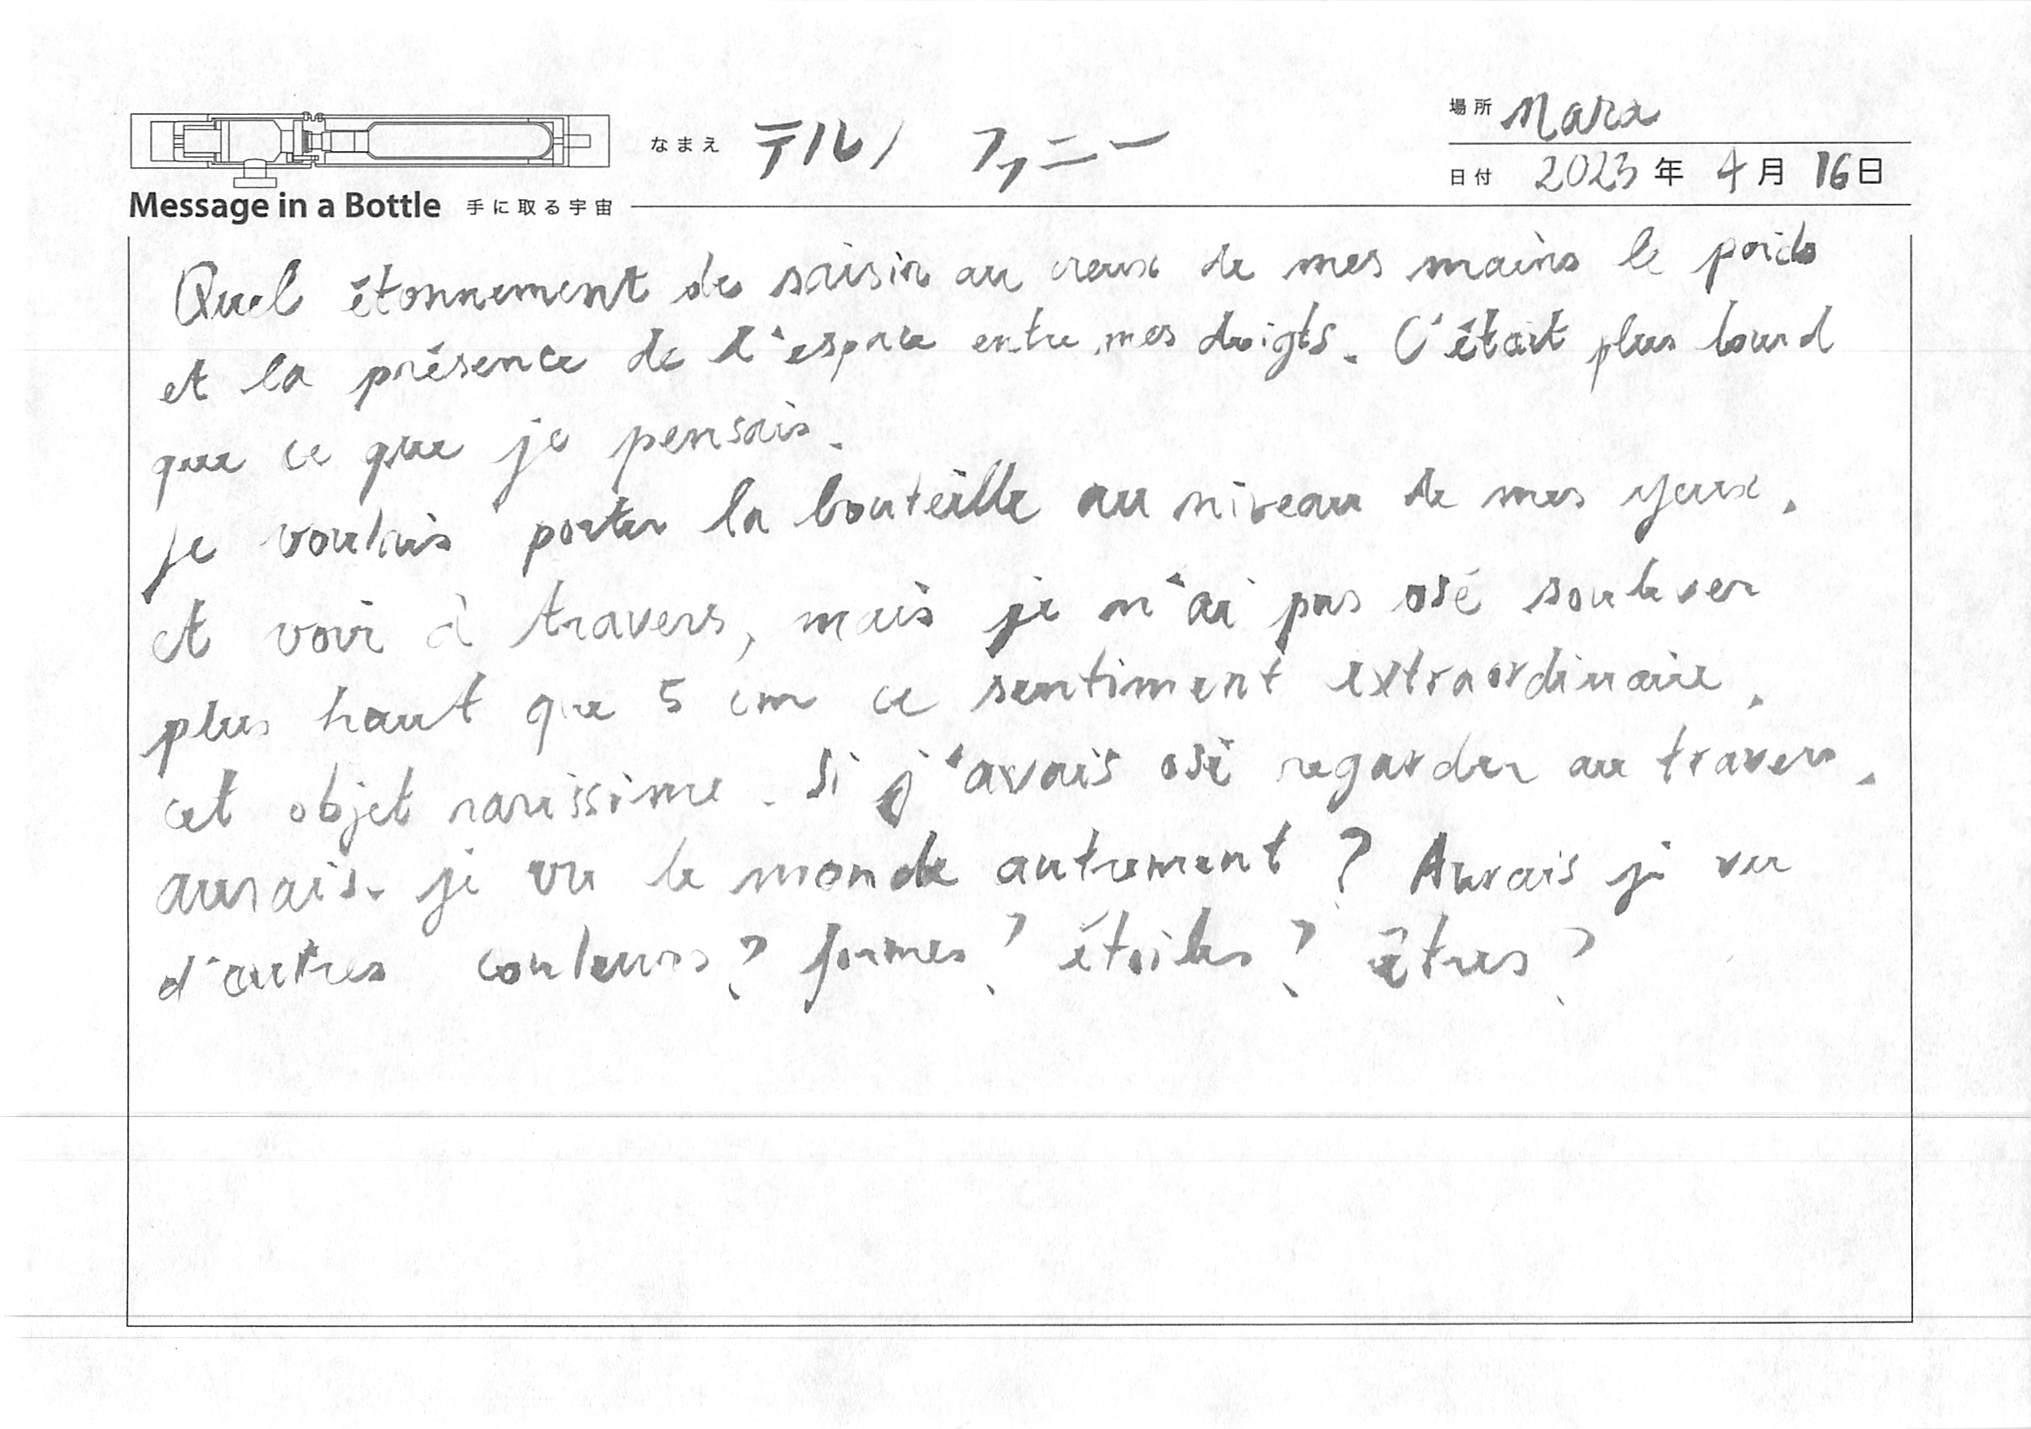 場所 Nara
なまえ テルノ ファニー
日付 2023年 4月 16日
Message in a Bottle 手に取る宇宙
Quel étonnement de saisir au creux de mes mains le poids
et la présence de l'espace entre mes doigts. C'était plus lourd
que ce que je pensais.
Je voulais porter la bouteille au niveau de mes yeux,
et voir à travers, mais je n'ai pas osé soulever
plus haut que 5 cm ce sentiment extraordinaire,
cet objet rarissime. Si j'avais osé regarder au travers,
aurais-je vu le monde autrement ? Aurais je vu
d'autres couleurs ? formes ? étoiles ? êtres ?